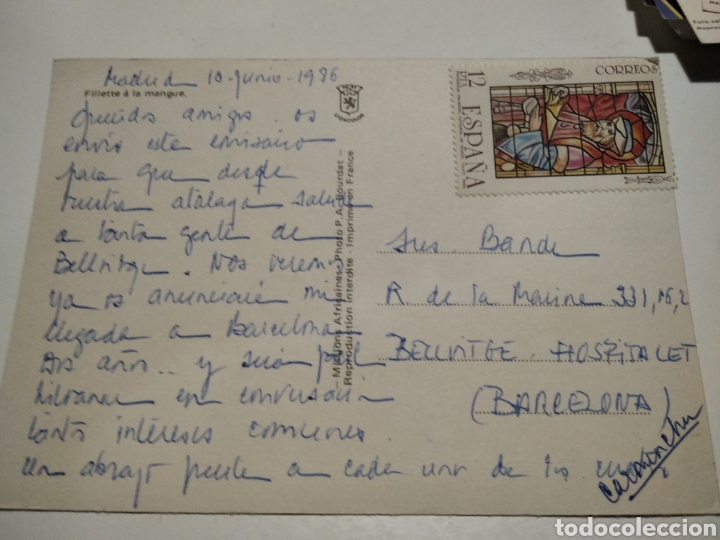 Madrid 10-Junio-1986
Fillette à la mangue.
Queridos amigos. os
envío este emisario
para que desde
vuestra atalaya salude
a tanta gente de
Bellvitge. Nos veremos
ya os anunciaré mi
llegada a Barcelona
dos años.. y será para
en conversación
tantos intereses comunes.
Un abrazo fuerte a cada uno de los
Carmenchu
Missions Africaines - Photo P.A. Bourdat -
Reproduction interdite - Imprimé en France
CORREOS
12 PTA
ESPAÑA
Sres. Bande
R. de la Marine 331, 15, 2
BELLVITGE. HOSPITALET
(BARCELONA)
todocoleccion